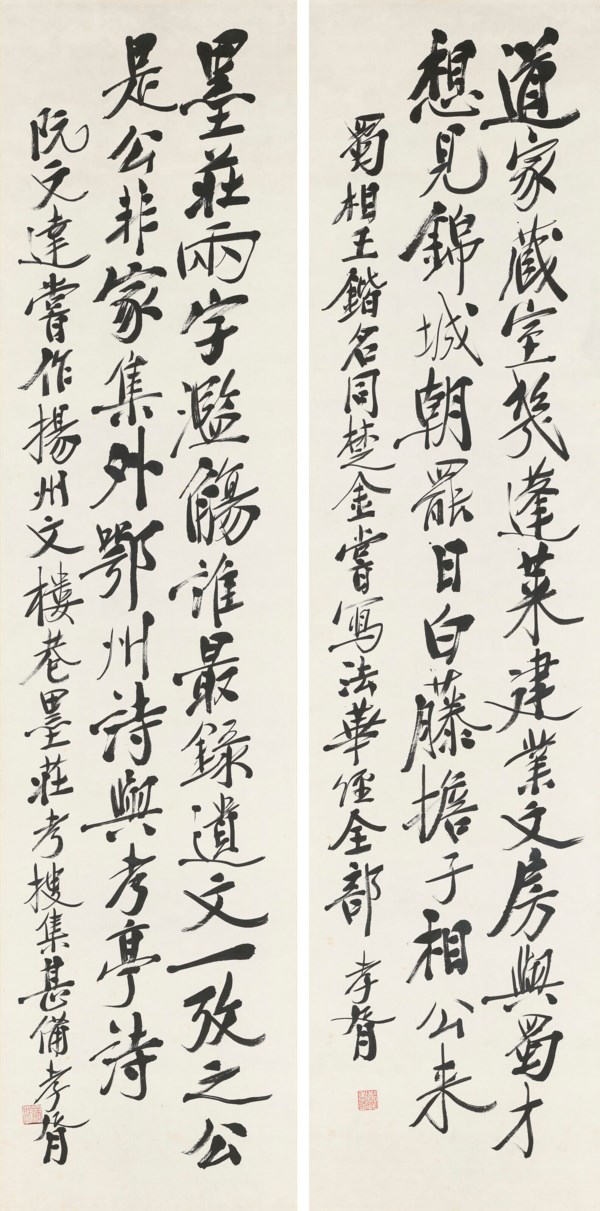 道家藏室幾蓬萊建業文房與蜀才
想見錦城朝罷日白藤擔子相公来
蜀相王鍇名同楚金嘗寫法華經全部 孝胥
墨莊兩字濫觴誰最錄遺文一攷之公
是公非家集外鄂州詩與考亭詩
阮文達嘗作揚州文樓巷墨莊考搜集甚備孝胥